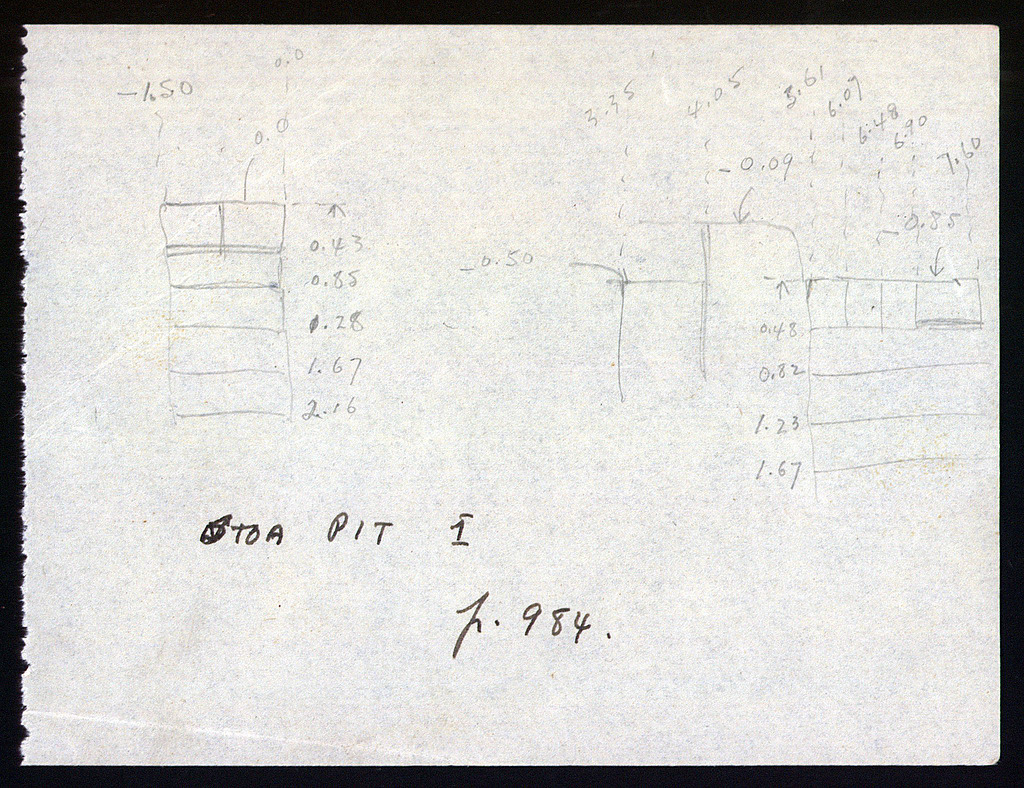 0.0
-1.50
0.0
0.43
0.85
1.28
1.67
2.16
3.35
4.05
5.61
6.07
6.48
6.90
7.60
-0.09
-0.85
-0.50
0.48
0.82
1.23
1.67
STOA PIT I
p. 984.